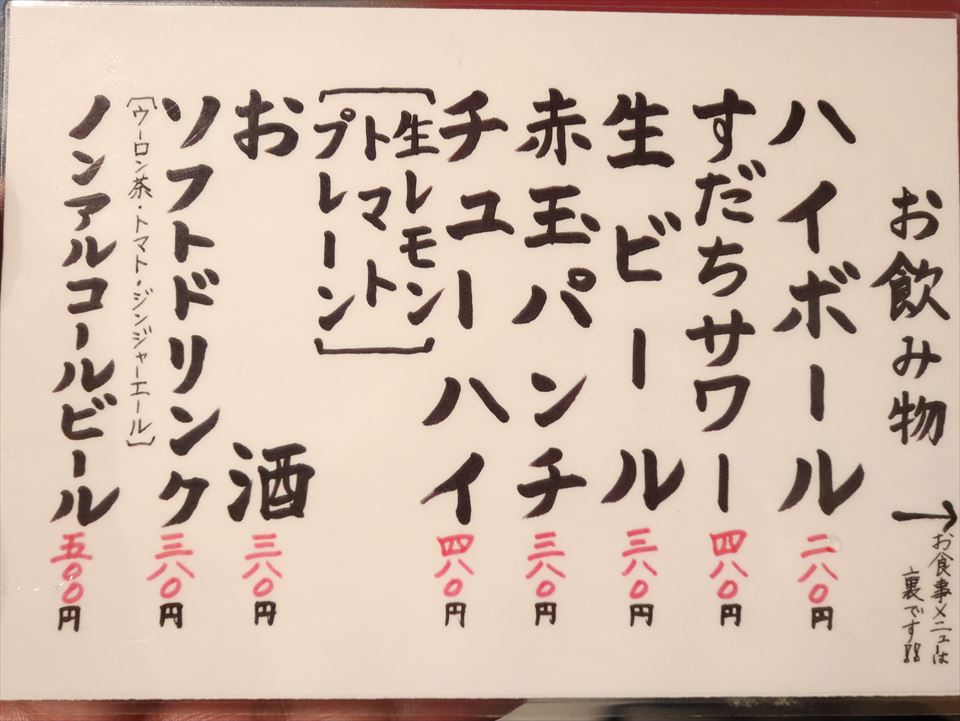 お飲み物
→お食事メニューは
裏です!!
ハイボール 二八〇円
すだちサワー 四八〇円
生ビール 三八〇円
赤玉パンチ 三八〇円
チューハイ 四八〇円
[生レモン
トマト
プレーン]
お酒 三八〇円
ソフトドリンク 三八〇円
[ウーロン茶・トマト・ジンジャーエール]
ノンアルコールビール 五〇〇円